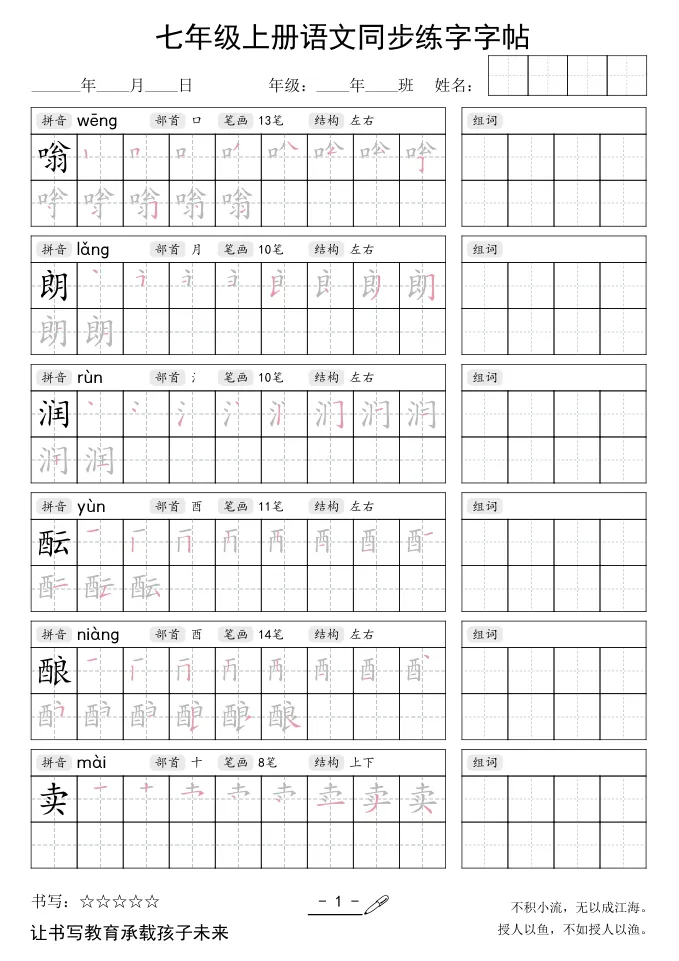 七年级上册语文同步练字字帖
______年____月____日 年级：____年____班 姓名：
拼音 wēng 部首 口 笔画 13笔 结构 左右 组词
嗡
拼音 lǎng 部首 月 笔画 10笔 结构 左右 组词
朗
拼音 rùn 部首 氵 笔画 10笔 结构 左右 组词
润
拼音 yùn 部首 酉 笔画 11笔 结构 左右 组词
酝
拼音 niàng 部首 酉 笔画 14笔 结构 左右 组词
酿
拼音 mài 部首 十 笔画 8笔 结构 上下 组词
卖
书写：☆☆☆☆☆ - 1 - 不积小流，无以成江海。
让书写教育承载孩子未来 授人以鱼，不如授人以渔。